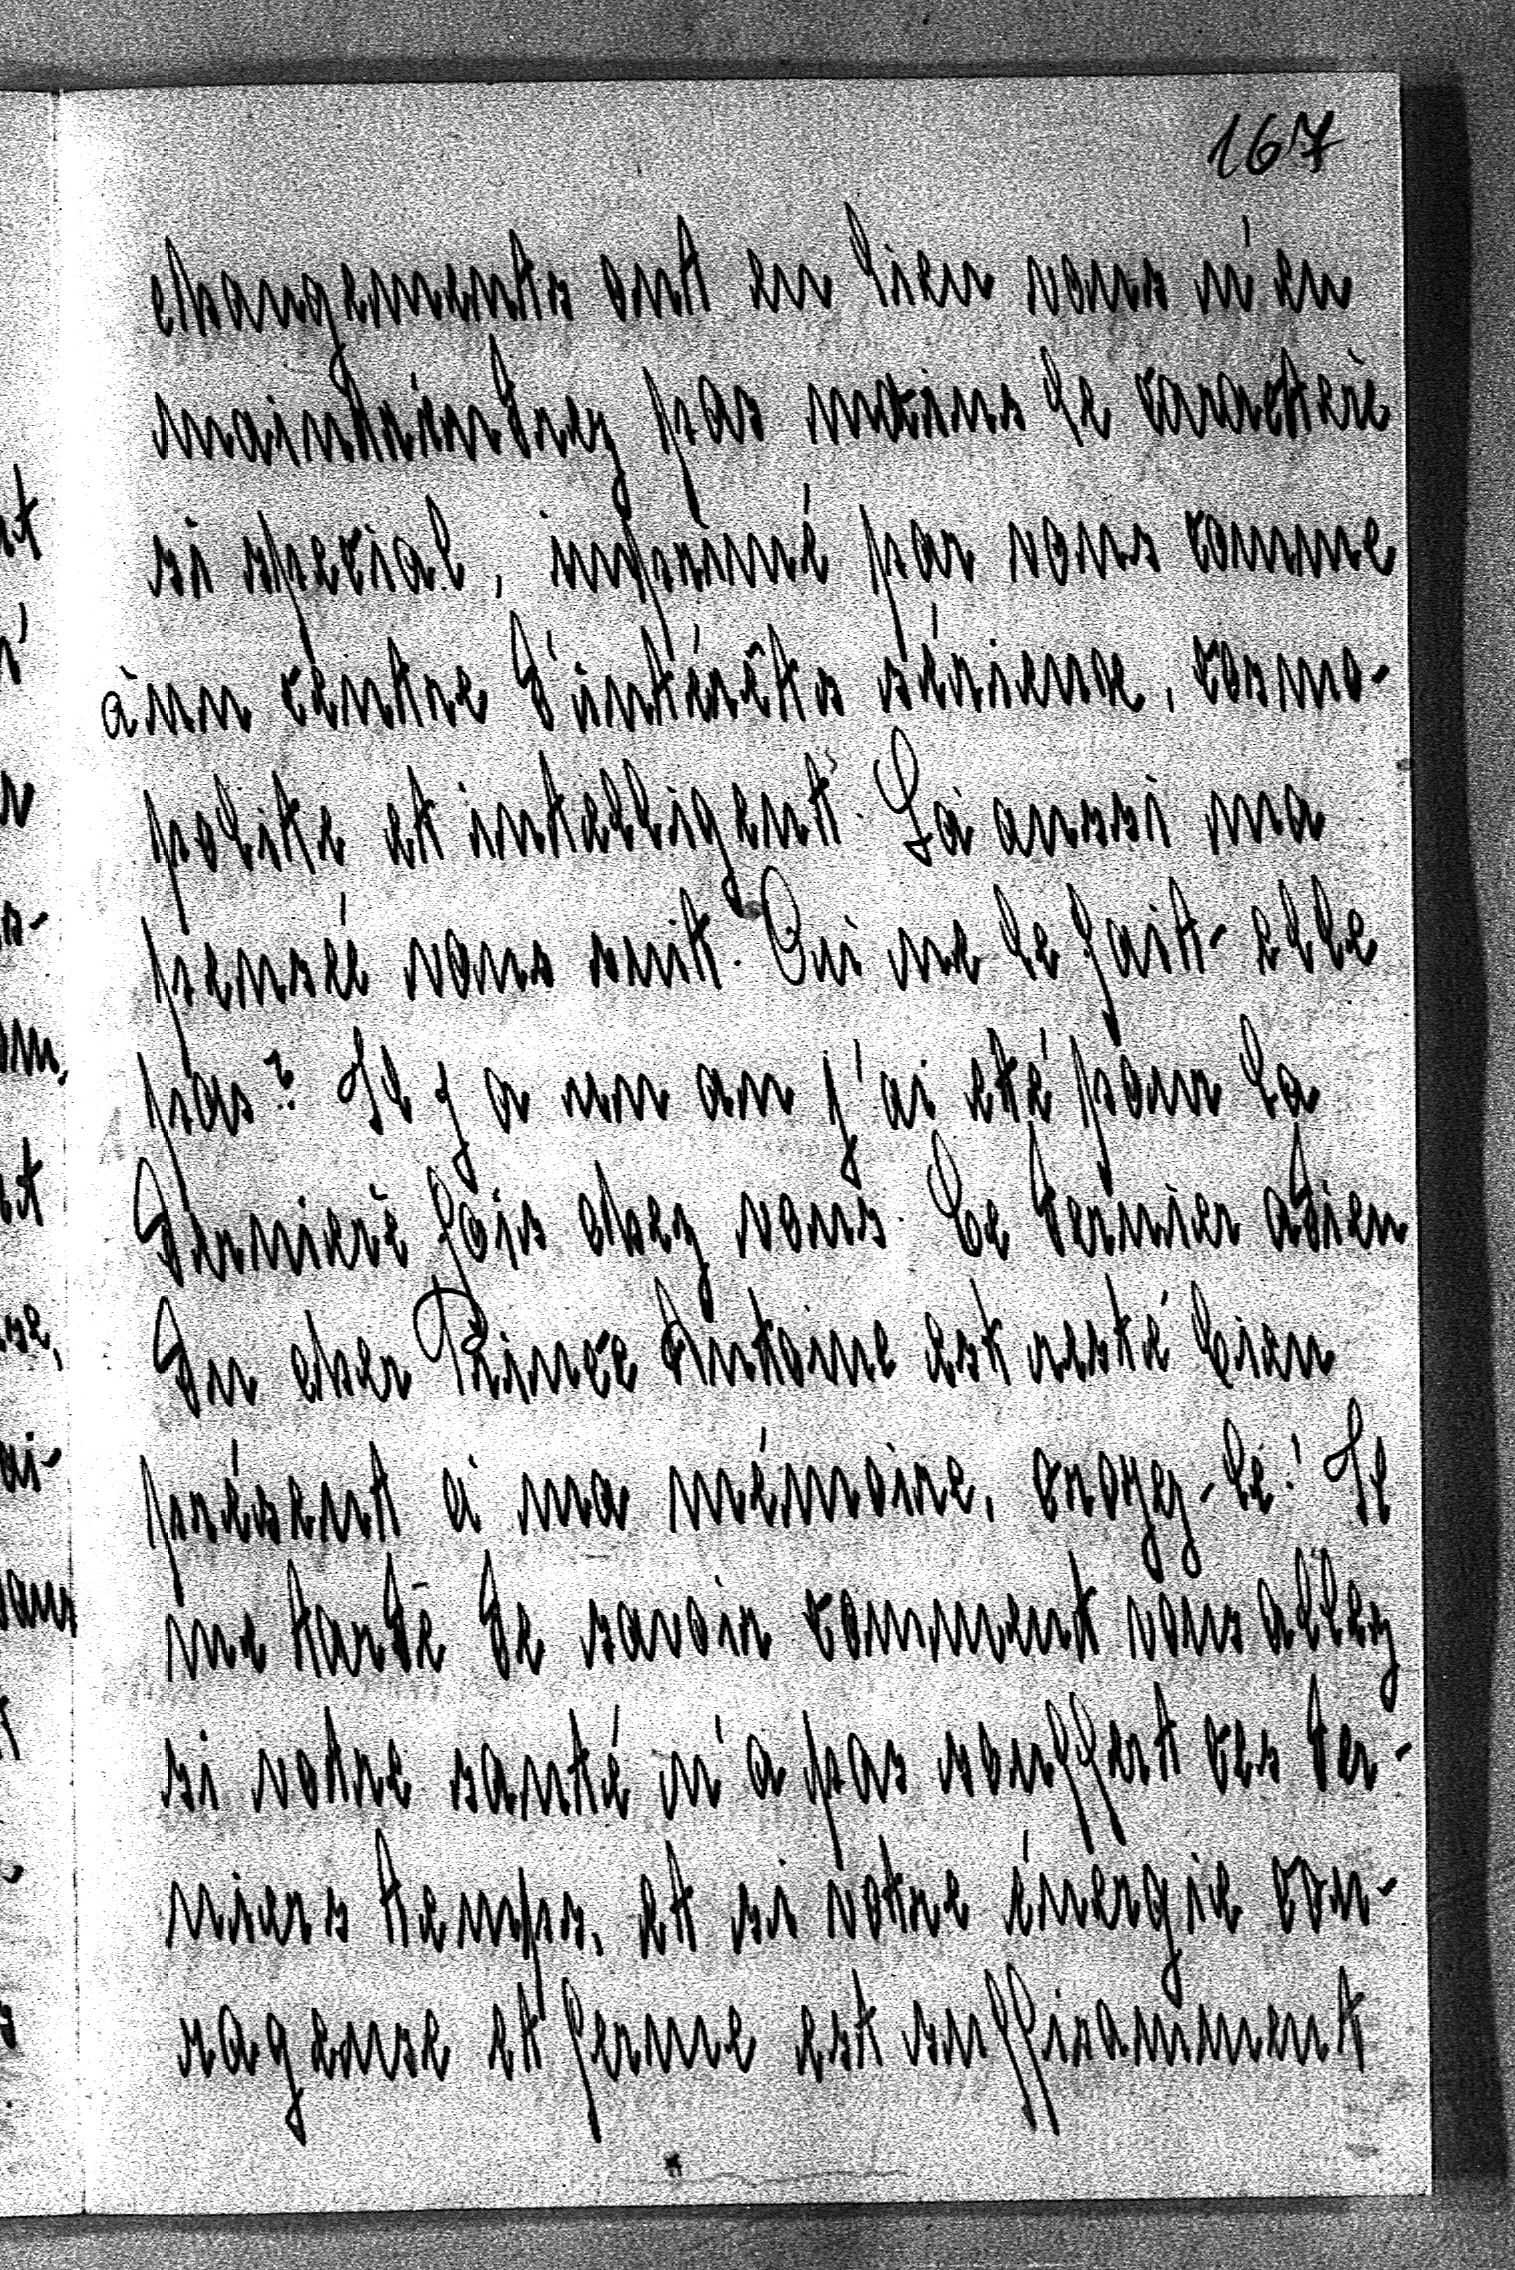 167
changements ont eu lieu vous n'en
maintiendrez pas moins le caractère
si special, imprimé par vous comme
à un centre d'intérêts sérieuse, cosmo-
polite et intelligent. Là aussi ma
pensée vous suit. Qui ne le fait-elle
pas? Il y a un an j'ai été pour la
derniere fois chez vous. Le dernier adieu
du cher Prince Antoine est resté bien
présent à ma mémoire, croyez-le! Il
me tarde de savoir comment vous allez
si votre santé n'a pas souffert ces der-
niers temps, et si votre énergie cou-
rageuse et ferme est suffisamment